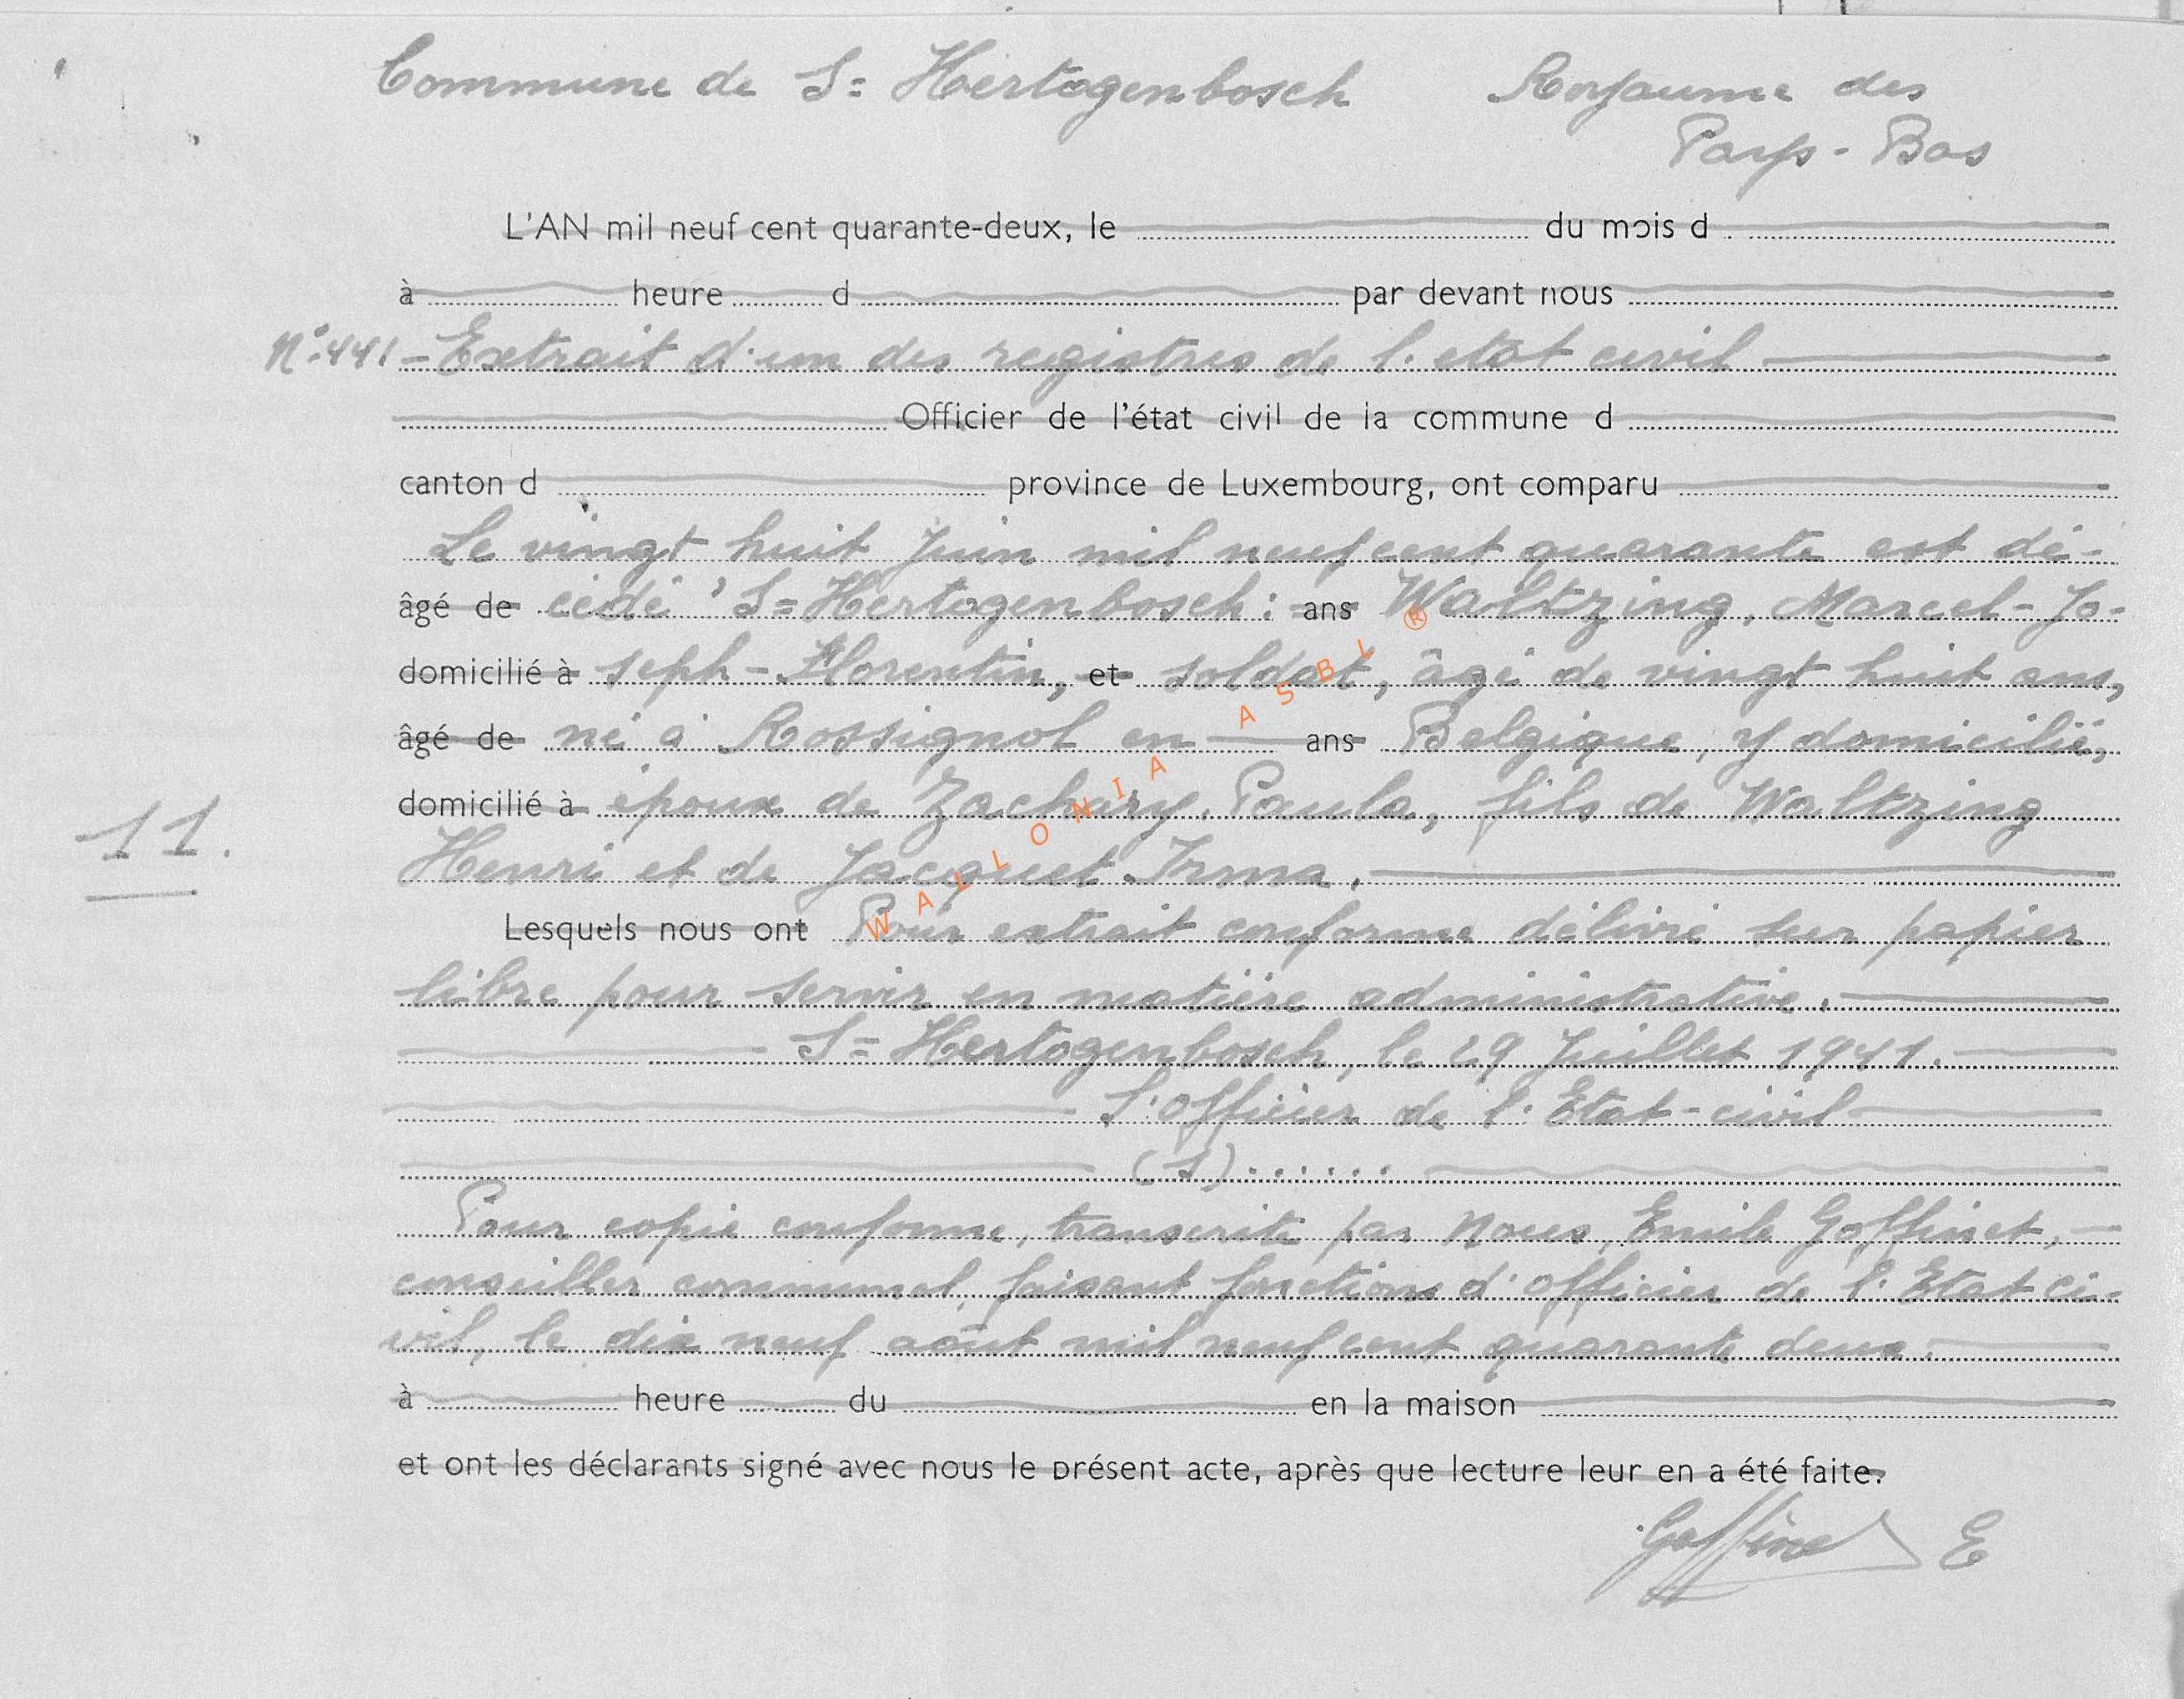 Commune de S= Hertogenbosch Royaume des
Pays-Bas
L'AN mil neuf cent quarante-deux, le du mois d
à heure d par devant nous
N°: 441 - Extrait d'un des registres de l'etat civil
Officier de l'état civil de la commune d
canton d province de Luxembourg, ont comparu
Le vingt huit Juin mil neuf cent quarante est dé-
âgé de cédé ' S= Hertogenbosch: ans Waltzing, Marcel-Jo-
domicilié à seph-Florentin, et soldat, âgé de vingt huit ans,
âgé de né à Rossignol en ans Belgique, y domicilié,
domicilié à époux de Zachary, Paula, fils de Waltzing
11.
Henri et de Jacquet Irma.
Lesquels nous ont Pour extrait conforme délivré sur papier
libre pour servir en matière administrative.
S= Hertogenbosch, le 29 Juillet 1941.
L'officier de l'Etat-civil
(S).......
Pour copie conforme, transcrite par Nous, Emile Goffinet,
conseiller communal, faisant fonctions d'officier de l'Etat ci-
vil, le dix neuf août mil neuf cent quarante deux.
à heure du en la maison
et ont les déclarants signé avec nous le présent acte, après que lecture leur en a été faite.
Goffinet E
WALLONIA ASBL ®